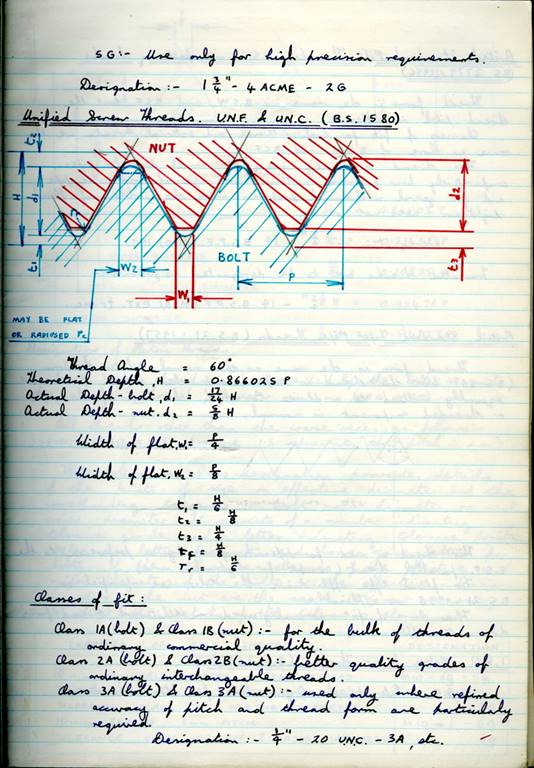 5G :- Use only for high precision requirements.
Designation :- 1 3/4" - 4 ACME - 2G
Unified Screw Threads. U.N.F. & U.N.C. (B.S. 1580)
NUT
t2
H
d1
t1
r
d2
t3
W2
W1
BOLT
P
MAY BE FLAT
OR RADIUSED
Thread Angle = 60°
Theoretical Depth, H = 0.866025 P
Actual Depth - bolt, d1 = 17/24 H
Actual Depth - nut. d2 = 5/8 H
Width of flat, W1 = P/4
Width of flat, W2 = P/8
t1 = H/6
t2 = H/8
t3 = H/4
rf = H/8
rr = H/6
Classes of fit :
Class 1A (bolt) & Class 1B (nut) :- for the bulk of threads of
ordinary commercial quality.
Class 2A (bolt) & Class 2B (nut) :- better quality grades of
ordinary interchangeable threads.
Class 3A (bolt) & Class 3A (nut) :- used only where refined
accuracy of pitch and thread form are particularly
required.
Designation :- 1/4" - 20 U.N.C. - 3A, etc.